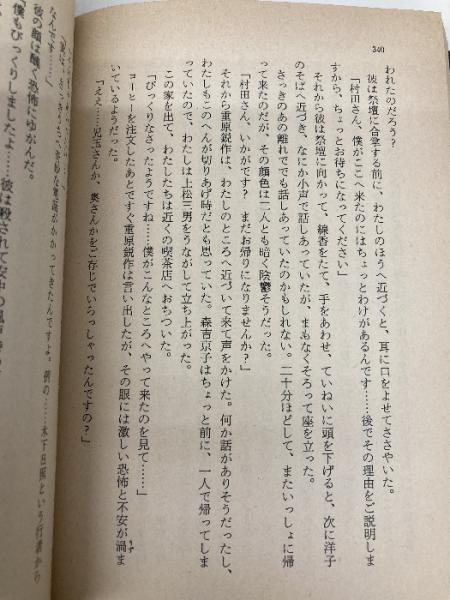 340
われたのだろう?
彼は祭壇に合掌する前に、わたしのほうへ近づくと、耳に口をよせてささやいた。
「村田さん、僕がここへ来たのにはちょっとわけがあるんです……後でその理由をご説明しま
すから、ちょっとお待ちになってください」
それから彼は祭壇に向かって、線香をたて、手をあわせ、ていねいに頭を下げると、次に洋子
のそばへ近づき、なにか小声で話しあっていたが、まもなくそろって座を立った。
さっきのあの離れででも話しあっていたのかもしれない。二十分ほどして、またいっしょに帰
って来たのだが、その顔色は二人とも暗く陰鬱そうだった。
「村田さん、いかがです? まだお帰りになりませんか?」
それから重原鋭作は、わたしのところへ近づいて来て声をかけた。何か話がありそうだったし、
わたしもこのへんが切りあげ時だとも思っていた。森吉京子はちょっと前に、一人で帰ってしま
っていたので、わたしは上松三男をうながして立ち上がった。
この家を出て、わたしたちは近くの喫茶店へおちついた。
「びっくりなさったようですね……僕がこんなところへやって来たのを見て……」
コーヒーを注文したあとですぐ重原鋭作は言い出したが、その眼には激しい恐怖と不安が渦ま
うず
いているようだった。
「ええ……児玉さんか、奥さんかをご存じでいらっしゃったんですの?」
かかってきたんですよ。例の……木下日照という行者から
なんです……」
彼の顔は醜く恐怖にゆがんだ。
「僕もびっくりしましたよ……彼は殺されて